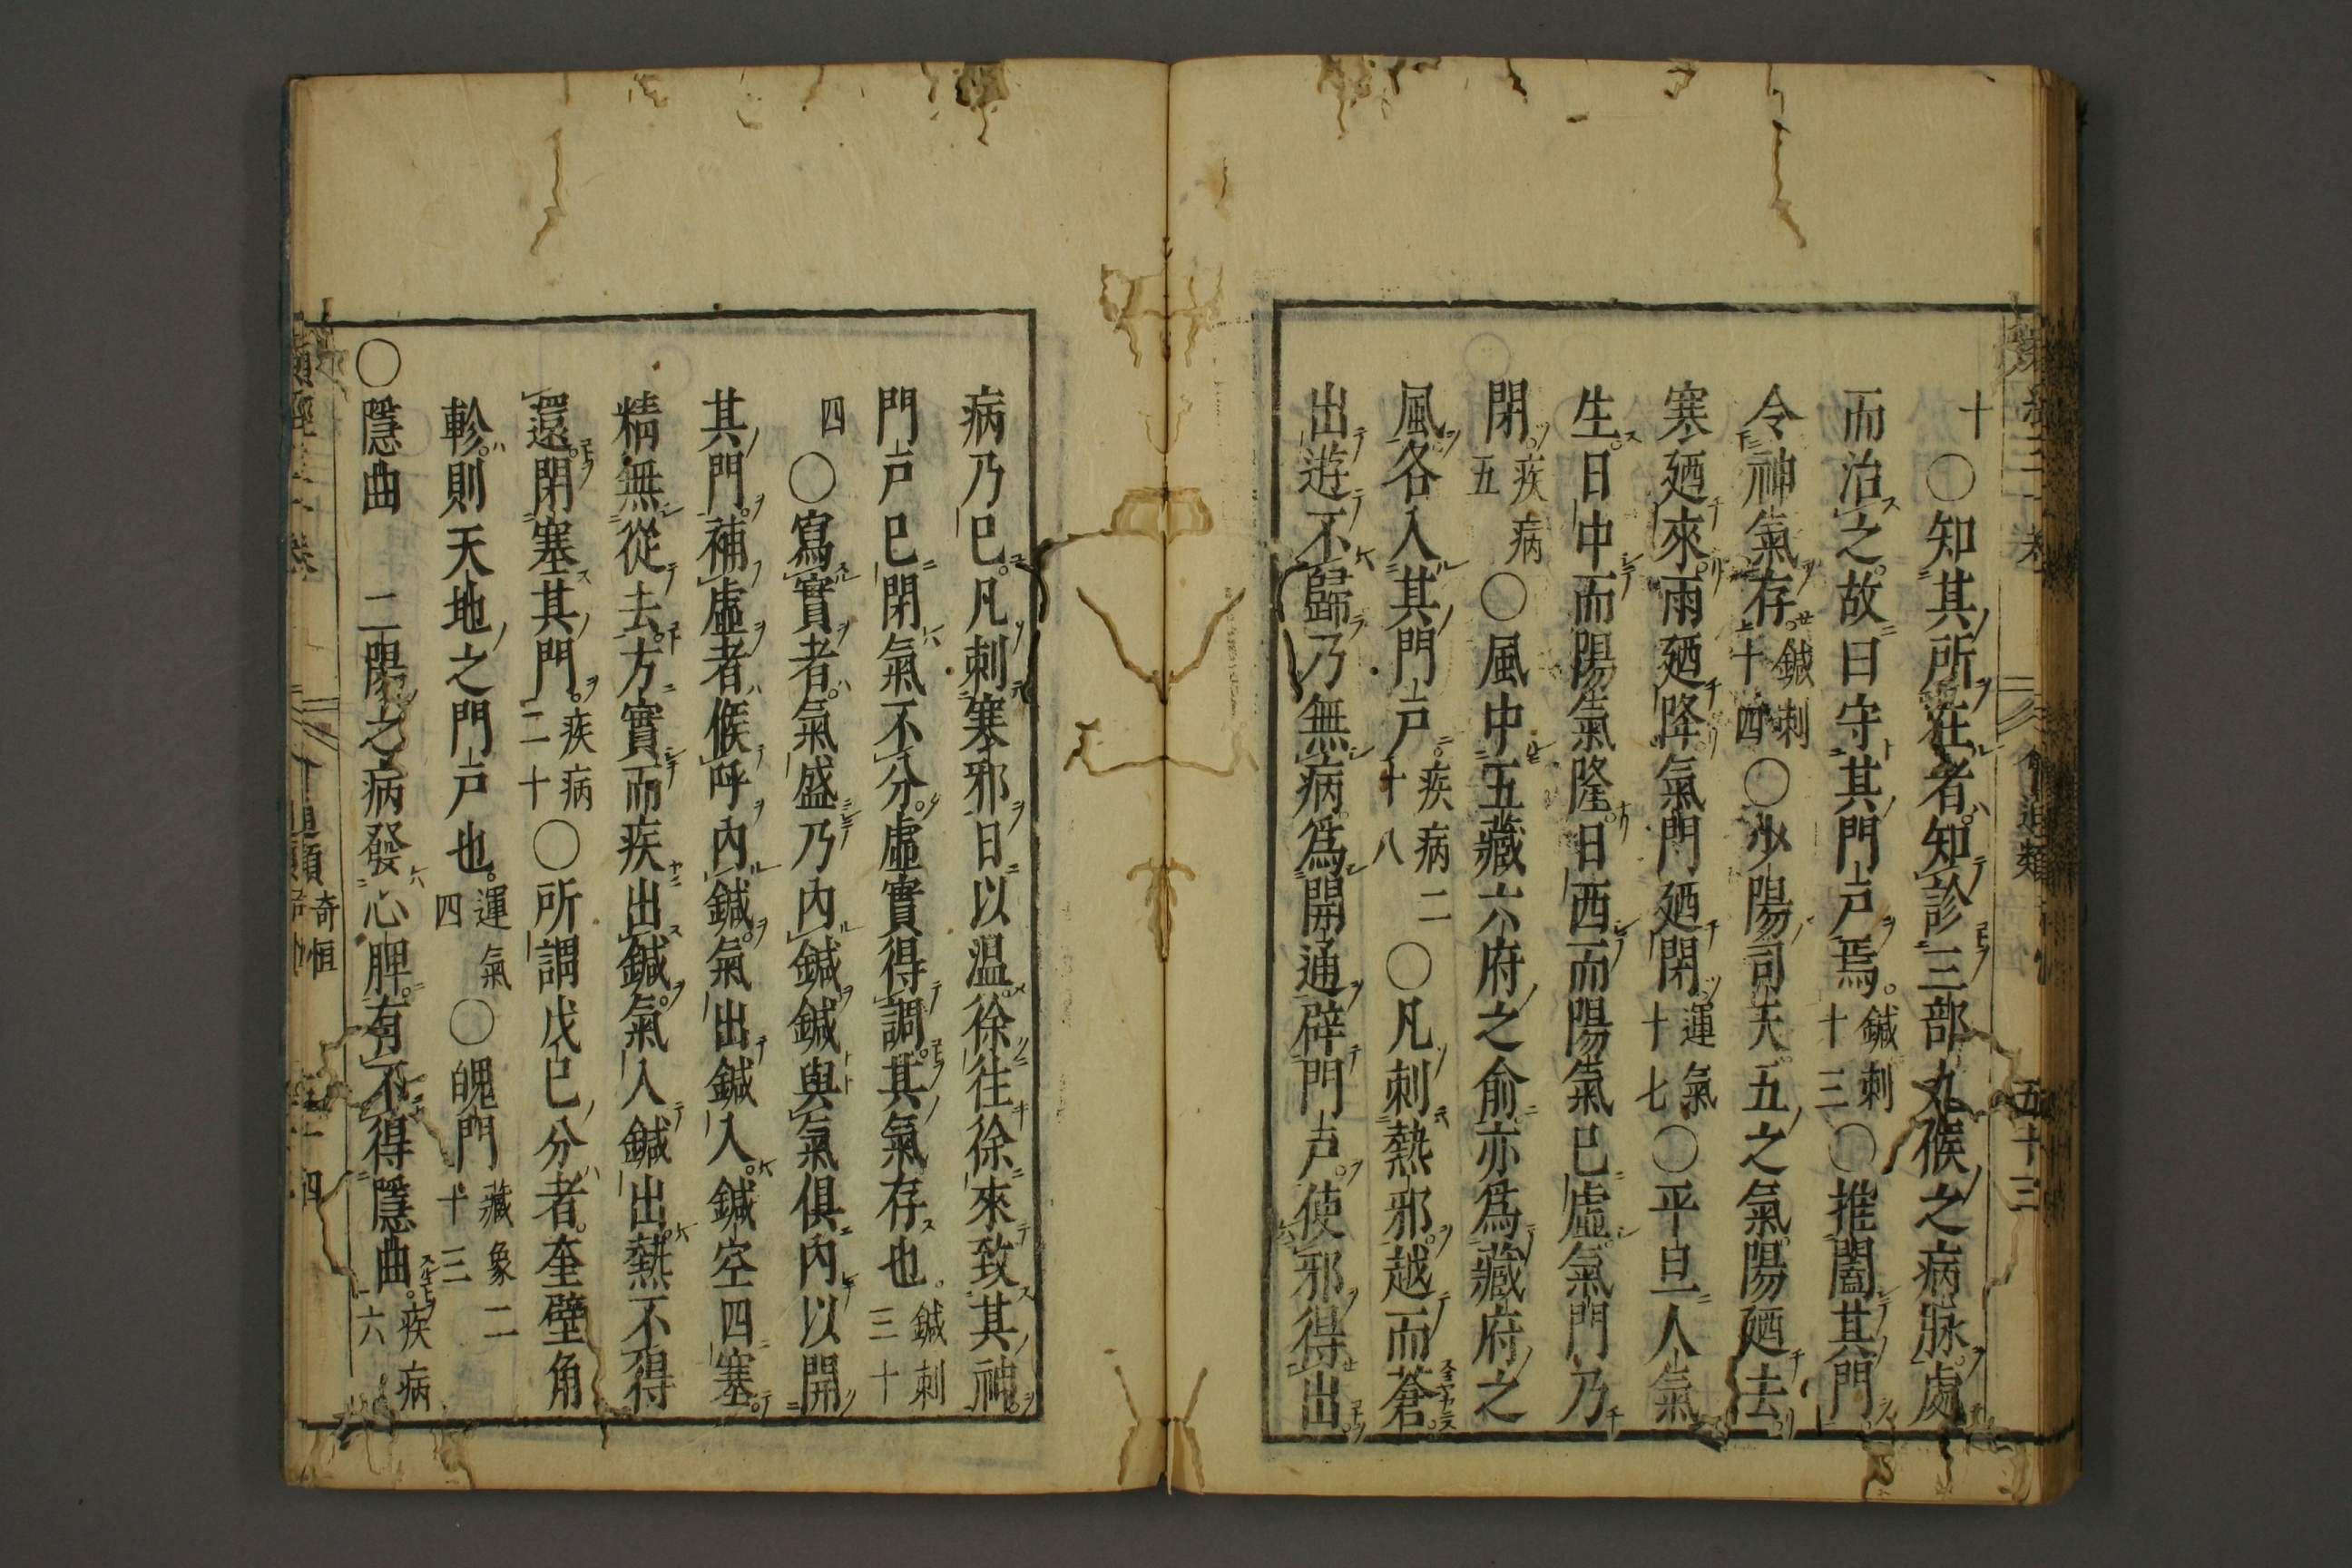 十〇知其所在者知診三部九候之病脉處
而治之故曰守其門戸焉鍼刺十三〇推闔其門
令神氣存鍼刺十四〇少陽司天五之氣陽廼去
寒廼來雨廼降氣門廼閉運氣十七〇平旦人氣
生日中而陽氣隆日西而陽氣已虛氣門乃
閉疾病五〇風中五藏六府之俞亦爲藏府之
風各入其門戸疾病二十八〇凡刺熱邪越而蒼
出遊不歸乃無病爲開通辟門戸使邪得出
五十三
病乃已凡刺寒邪日以温徐往徐來致其神
門戸已閉氣不分虛實得調其氣存也鍼刺三十
四〇寫實者氣盛乃內鍼鍼與氣俱內以開
其門補虛者候呼內鍼氣出鍼入鍼空四塞
精無從去方實而疾出鍼氣入鍼出熱不得
還閉塞其門疾病二十〇所謂戊己分者奎壁角
軫則天地之門戸也運氣四〇魄門藏象二十三
〇隱曲　二陽之病發心脾有不得隱曲疾病六